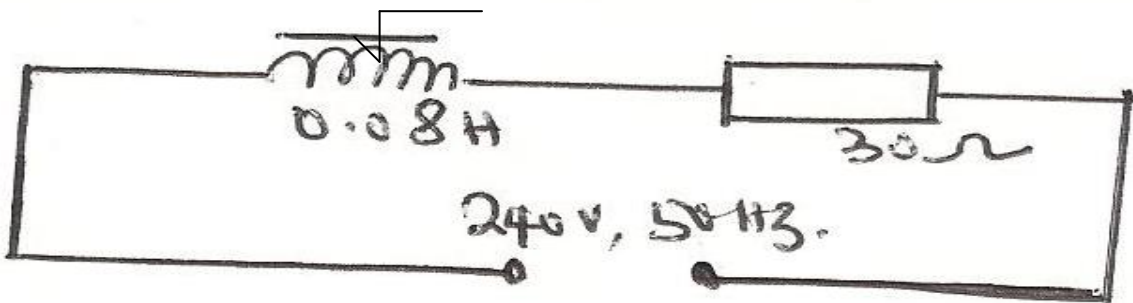 0.08H
30Ω
240v, 50Hz.